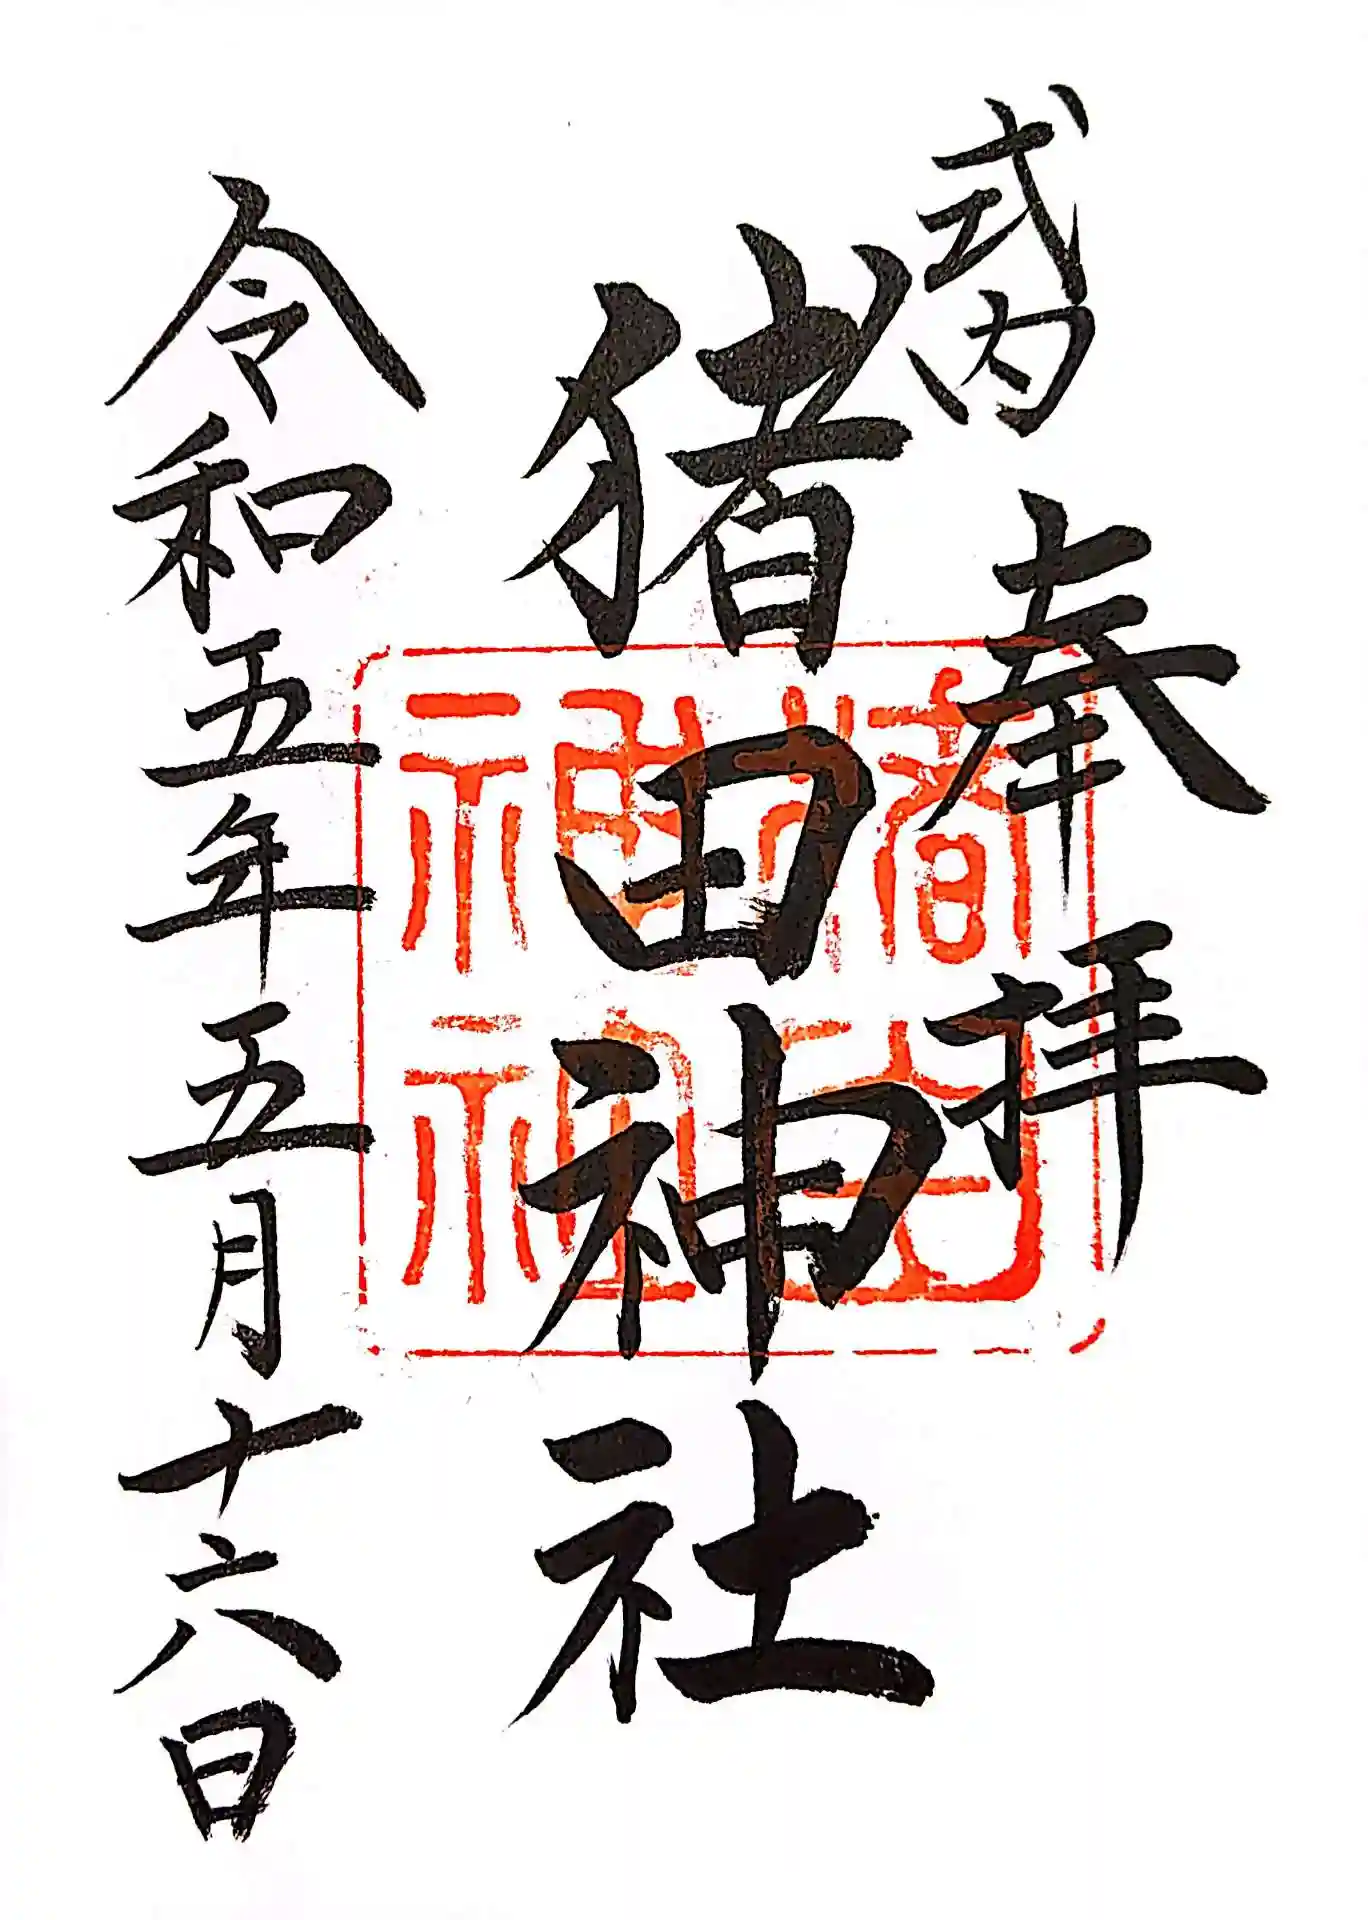 式内
奉拝
猪田神社
猪田神社
令和五年五月十六日